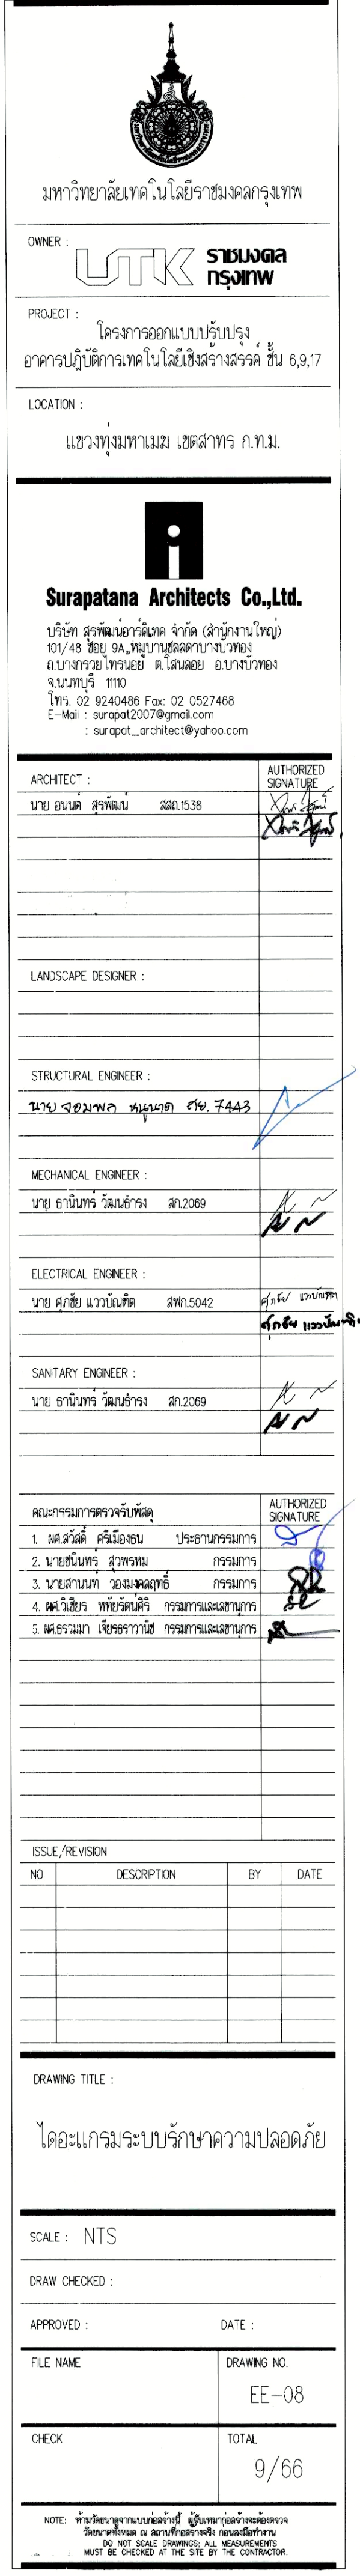 มหาวิทยาลัยเทคโนโลยีราชมงคลกรุงเทพ
OWNER :
UTK ราชมงคล
กรุงเทพ
PROJECT :
โครงการออกแบบปรับปรุง
อาคารปฏิบัติการเทคโนโลยีเชิงสร้างสรรค์ ชั้น 6,9,17
LOCATION :
แขวงทุ่งมหาเมฆ เขตสาทร ก.ท.ม.
Surapatana Architects Co.,Ltd.
บริษัท สุรพัฒน์อาร์คิเทค จำกัด (สำนักงานใหญ่)
101/48 ซอย 9A หมู่บานชลลดาบางบัวทอง
ถ.บางกรวยไทรน้อย ต.โสนลอย อ.บางบัวทอง
จ.นนทบุรี 11110
โทร. 02 9240486 Fax: 02 0527468
E-Mail : surapat2007@gmail.com
: surapat_architect@yahoo.com
ARCHITECT :
AUTHORIZED
SIGNATURE
นาย อนนต์ สุรพัฒน์ สสถ.1538
LANDSCAPE DESIGNER :
STRUCTURAL ENGINEER :
นาย จอมพล หนูนาด สย. 7443
MECHANICAL ENGINEER :
นาย ธานินทร์ วัฒนธำรง สก.2069
ELECTRICAL ENGINEER :
นาย ศุภชัย แววบัณฑิต สฟก.5042
ศุภชัย แววบัณฑิต
ศุภชัย แววบัณฑิต
SANITARY ENGINEER :
นาย ธานินทร์ วัฒนธำรง สก.2069
คณะกรรมการตรวจรับพัสดุ
AUTHORIZED
SIGNATURE
1. ผศ.สวัสดิ์ ศรีเมืองธน ประธานกรรมการ
2. นายชนินทร์ สุวพรหม กรรมการ
3. นายสานนท์ วองมงคลฤทธิ์ กรรมการ
4. ผศ.วิเชียร หทัยรัตน์ศิริ กรรมการและเลขานุการ
5. ผศ.ธรวมมา เจียรธราวานิช กรรมการและเลขานุการ
ISSUE/REVISION
NO DESCRIPTION BY DATE
DRAWING TITLE :
ไดอะแกรมระบบรักษาความปลอดภัย
SCALE : NTS
DRAW CHECKED :
APPROVED : DATE :
FILE NAME DRAWING NO.
EE-08
CHECK TOTAL
9/66
NOTE: ห้ามวัดขนาดจากแบบก่อสร้างนี้ ผู้รับเหมาก่อสร้างจะต้องตรวจ
วัดขนาดทั้งหมด ณ สถานที่ก่อสร้างจริง ก่อนลงมือทำงาน
DO NOT SCALE DRAWINGS; ALL MEASUREMENTS
MUST BE CHECKED AT THE SITE BY THE CONTRACTOR.